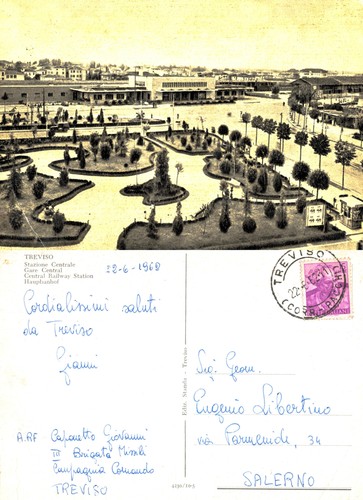 TREVISO
Stazione Centrale
Gare Central
Central Railway Station
Hauptbanhof
22-6-1962
Cordialissimi saluti
da Treviso
Gianni
A.RF Caponetto Giovanni
III Brigata Missili
Compagnia Comando
TREVISO
Ediz. Monda - Treviso
TREVISO
Sig. Geom.
Eugenio Libertino
via Parmenide, 34
SALERNO